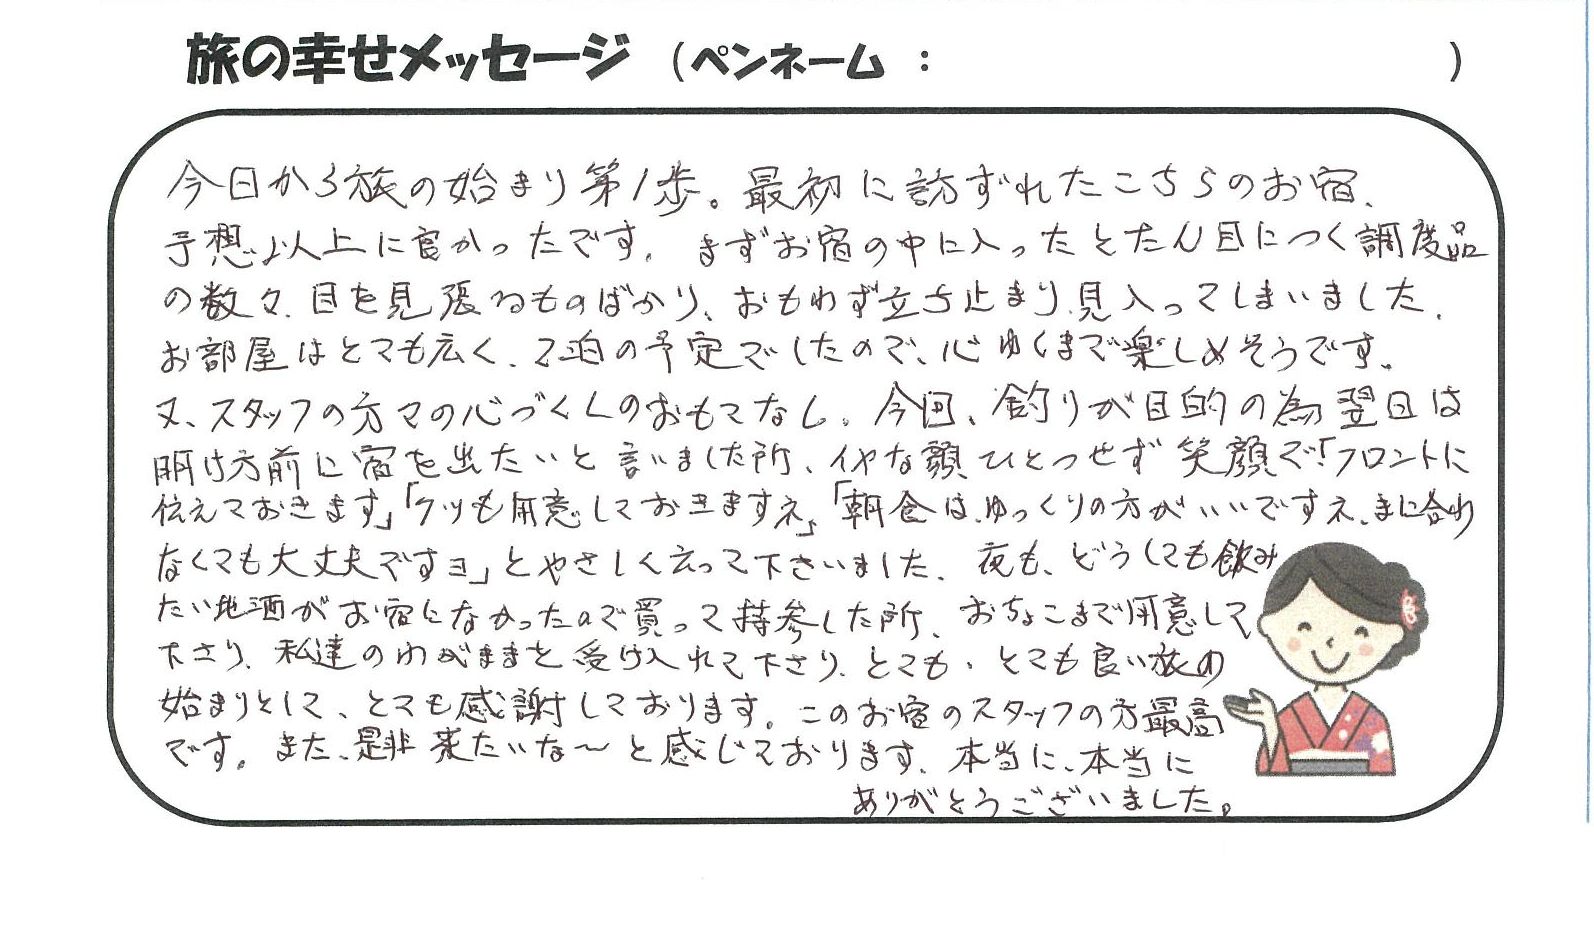 旅の幸せメッセージ （ペンネーム ： ）
今日から旅の始まり第1歩。最初に訪ずれたこちらのお宿、
予想以上に良かったです。まずお宿の中に入ったとたん目につく調度品
の数々、目を見張るものばかり、おもわず立ち止まり見入ってしまいました。
お部屋はとても広く、2泊の予定でしたので、心ゆくまで楽しめそうです。
又、スタッフの方々の心づくしのおもてなし。今回、釣りが目的の為翌日は
明け方前に宿を出たいと言いました所、イヤな顔ひとつせず笑顔で「フロントに
伝えておきます」「クツも用意しておきますネ」「朝食は、ゆっくりの方がいいですネ、まに合わ
なくても大丈夫ですョ」とやさしく云って下さいました。夜も、どうしても飲み
たい地酒がお宿になかったので買って持参した所、おちょこまで用意して
下さり、私達のわがままを受け入れて下さり、とても、とても良い旅の
始まりとして、とても感謝しております。このお宿のスタッフの方最高
です。また、是非来たいな～と感じております。本当に、本当に
ありがとうございました。